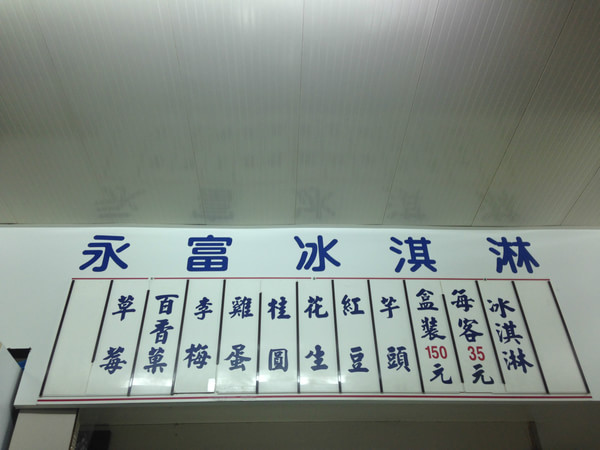 永富冰淇淋
冰淇淋
每客35元
盒裝150元
芋頭
紅豆
花生
桂圓
雞蛋
李梅
百香菓
草莓